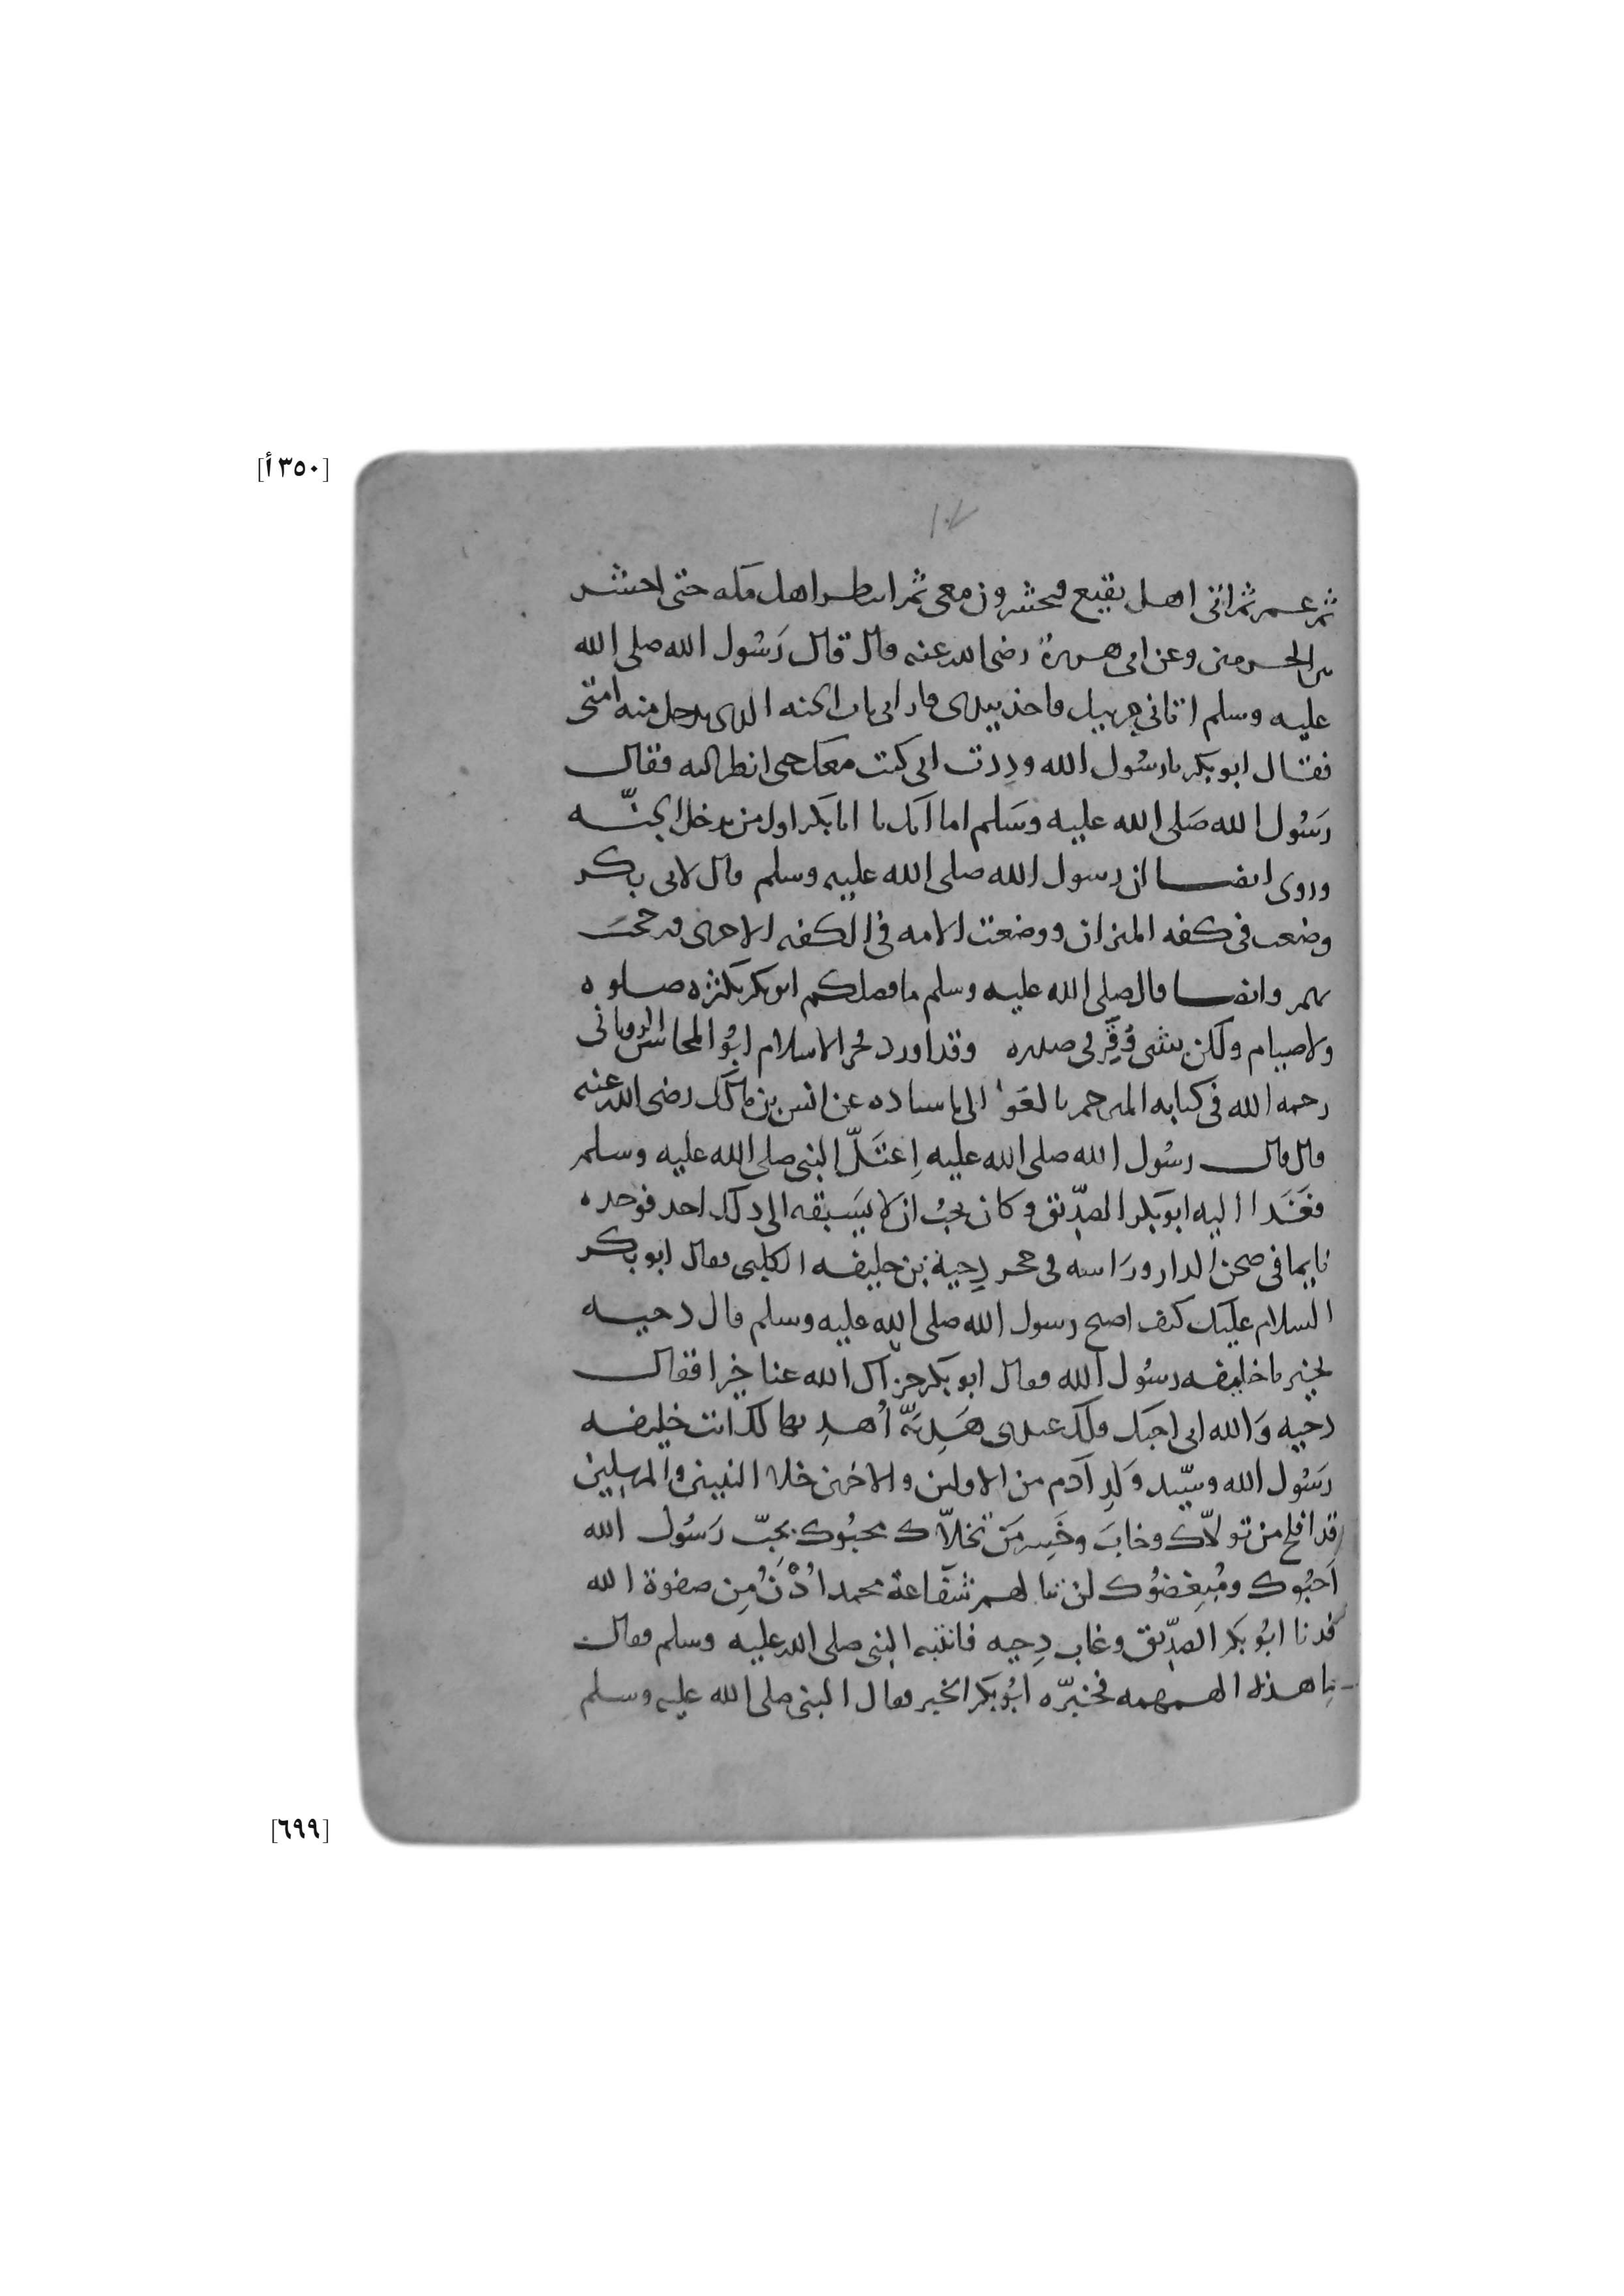 [٣٥٠ أ]
١٠٧
ثم عمر ثم اتى اهل بقيع فيحشرون معى ثم انتظر اهل مكه حتى احشر
بين الحرمين وعن ابى هريرة رضى الله عنه قال قال رَسُول الله صلى الله
عليه وسلم اتانى جبريل فاخذ بيدى فارانى باب الجنه الذى يدخل منه امتى
فقال ابو بكر يا رسُول الله وددت انى كنت معك حتى انظر اليه فقال
رَسُول الله صَلى الله عليه وسَلم اما انك يا ابا بكر اول من يدخل الجنّه
وروى ايضا ان رسول الله صلى الله عليه وسلم قال لابى بكر
وضعت فى كفه الميزان ووضعت الامه فى الكفه الاخرى فرجحتَ
بهم وايضا قال صلى الله عليه وسلم ما فضلكم ابو بكر بكثره صلوه
ولا صيام ولكن بشى وُقِّر فى صدره وقد اورد فخر الاسلام ابُو المحاسن الرويانى
رحمه الله فى كتابه المترجم بالعَوالى باسناده عن انس بن مالك رضى الله عنه
قال قال رسُول الله صلى الله عليه اِعتَلّ النبى صلى الله عليه وسلم
فغَدَا اليه ابو بَكر الصدّيق وكان يحبُ ان لا يَسبقه الى ذلك احد فوجده
نايما فى صحن الدار ورَاسه فى حجر دِحية بن خليفه الكلبى فقال ابو بكر
السلام عليك كيف اصبح رسول الله صلى الله عليه وسلم قال دحيه
بخير يا خليفه رسُول الله فقال ابو بكر جزاك الله عنا خيرا فقال
دحيه وَالله انى احبك ولك عندى هَدِيَّة اُهدِيها لك انت خليفه
رَسُول الله وسيّد وَلدِ آدم من الاولين والاخرين خلا النبيين والمرسلين
قد افلح من تولاّك وخابَ وخَسِر مَن تخلاّك محبُوك بحبّ رَسُول الله
اَحبُوك ومُبغِضوُك لن تنالهم شفَاعة محمد اُدْنُ مِن صفوة الله
فدنا ابُو بَكر الصدّيق وغاب دِحيه فانتبه النبى صلى الله عليه وسلم فقال
ما هذه الهمهمه فخبرّه ابُو بَكر الخبر فقال النبى صلى الله عليه وسلم
[٦٩٩]